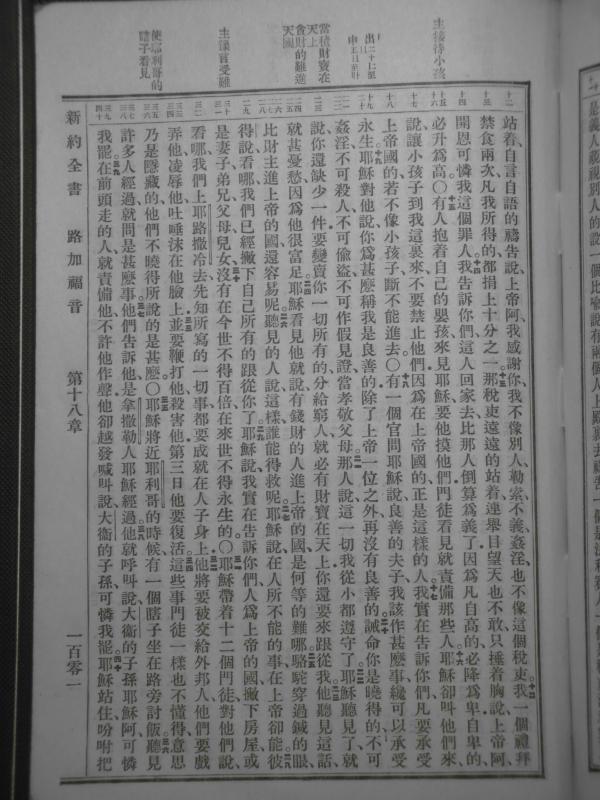 站着、自言自語的禱告說、上帝阿、我感謝你、我不像別人、勒索、不義、姦淫、也不像這個稅吏、我一個禮拜
禁食兩次、凡我所得的、都捐上十分之一、那稅吏遠遠的站着、連舉目望天也不敢、只捶着胸說、上帝阿、
開恩可憐我這個罪人、我告訴你們、這人回家去、比那人倒算爲義了、因爲凡自高的必降爲卑、自卑的
必升爲高○有人抱着自己的嬰孩來見耶穌、要他摸他們、門徒看見就責備那些人、耶穌卻叫他們來、
說讓小孩子到我這裏來、不要禁止他們、因爲在上帝國的、正是這樣的人、我實在告訴你們、凡要承受
上帝國的、若不像小孩子、斷不能進去○有一個官問耶穌說、良善的夫子、我該作甚麽事、纔可以承受
永生、耶穌對他說、你爲甚麽稱我是良善的、除了上帝一位之外、再沒有良善的、誡命你是曉得的、不可
姦淫、不可殺人、不可偷盜、不可作假見證、當孝敬父母、那人說、這一切我從小都遵守了、耶穌聽見了、就
說、你還缺少一件、要變賣你一切所有的、分給窮人、就必有財寶在天上、你還要來跟從我、他聽見這話、
就甚憂愁、因爲他很富足、耶穌看見他就說、有錢財的人進上帝的國、是何等的難哪、駱駝穿過鍼的眼、
比財主進上帝的國、還容易呢、聽見的人說、這樣誰能得救呢、耶穌說、在人所不能的事、在上帝卻能、彼
得說、看哪、我們已經撇下自己所有的、跟從你了、耶穌說、我實在告訴你們、人爲上帝的國、撇下房屋、或
是妻子、弟兄、父母、兒女、沒有在今世不得百倍、在來世不得永生的○耶穌帶着十二個門徒、對他們說、
看哪、我們上耶路撒冷去、先知所寫的一切事、都要成就在人子身上、他將要被交給外邦人、他們要戲
弄他、凌辱他、吐唾沫在他臉上、並要鞭打他、殺害他、第三日他要復活、這些事門徒一樣也不懂得、意思
乃是隱藏的、他們不曉得所說的是甚麽○耶穌將近耶利哥的時候、有一個瞎子坐在路旁討飯、聽見
許多人經過、就問是甚麽事、他們告訴他、是拿撒勒人耶穌經過、他就呼叫說、大衞的子孫耶穌阿、可憐
我罷、在前頭走的人、就責備他、不許他作聲、他卻越發喊叫說、大衞的子孫、可憐我罷、耶穌站住、吩咐把
主接待小孩
當積財寶在
天上
貪財的難進
天國
使耶利哥的
瞎子看見
新約全書 路加福音 第十八章 一百零一